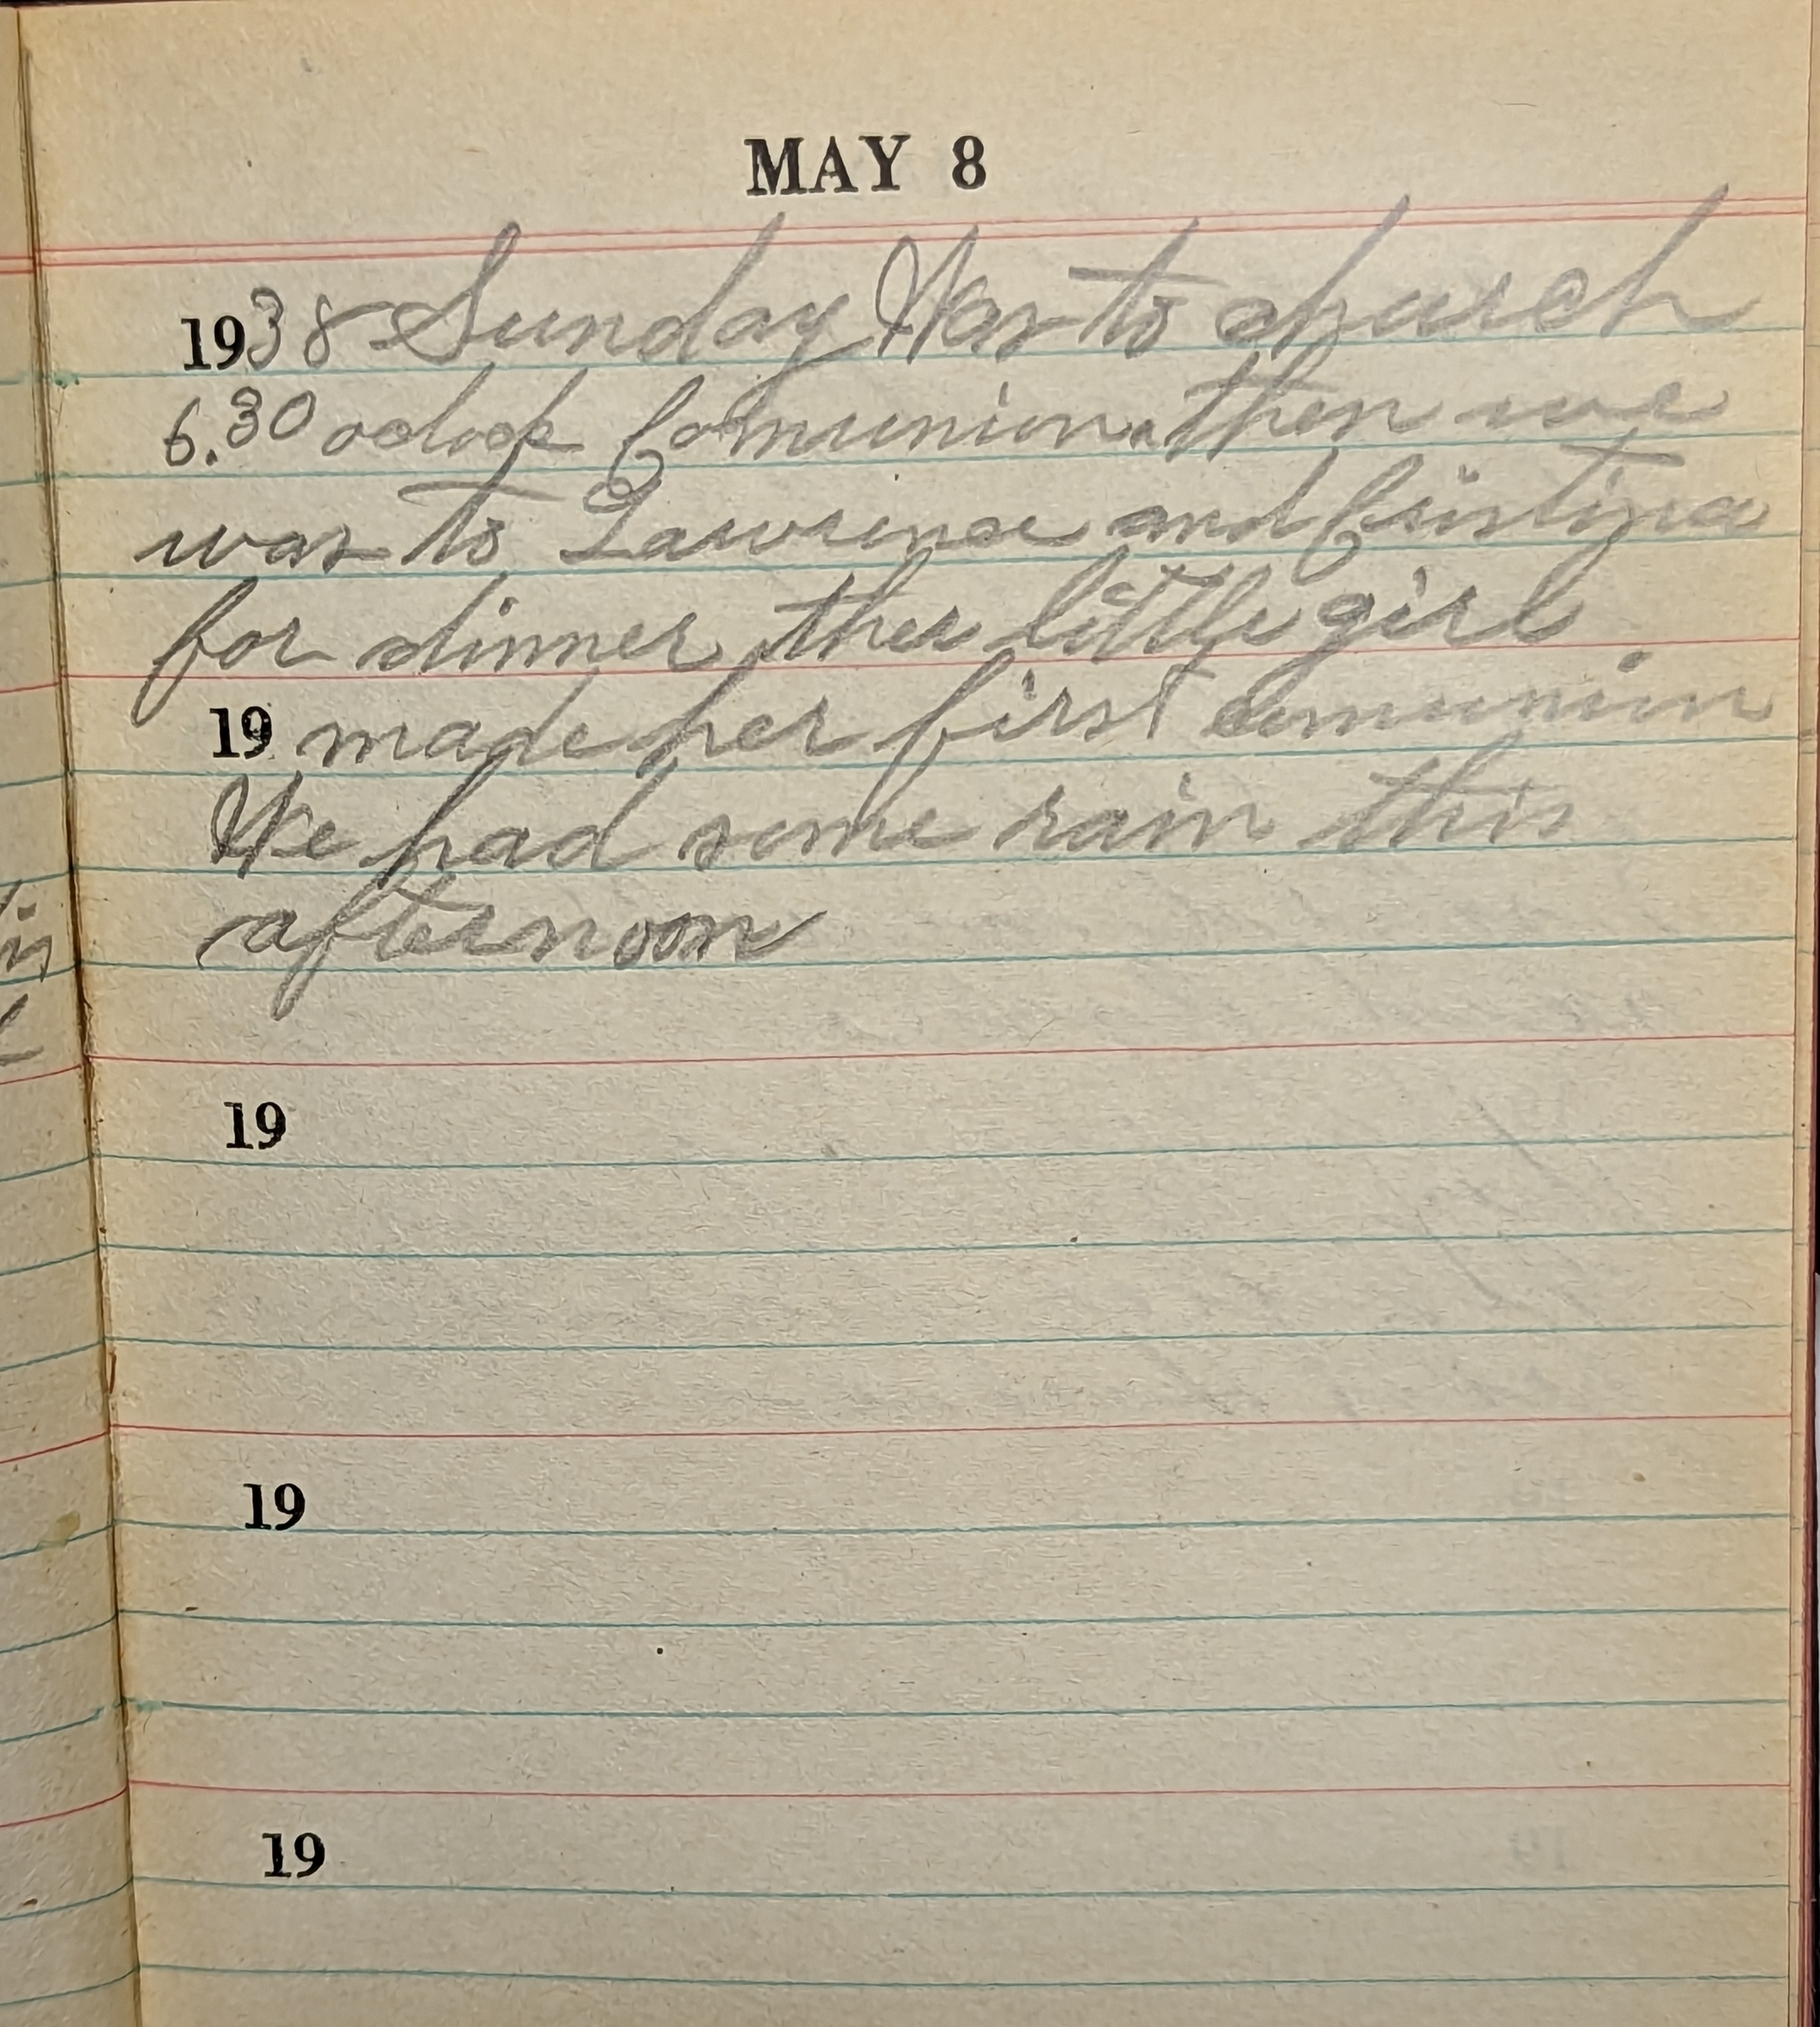 MAY 8
1938 Sunday Was to church
6.30 oclock Communion. then we
was to Lawrence and Cristina
for dinner ther little girl
19 made her first comunion
We had some rain this
afternoon
19
19
19